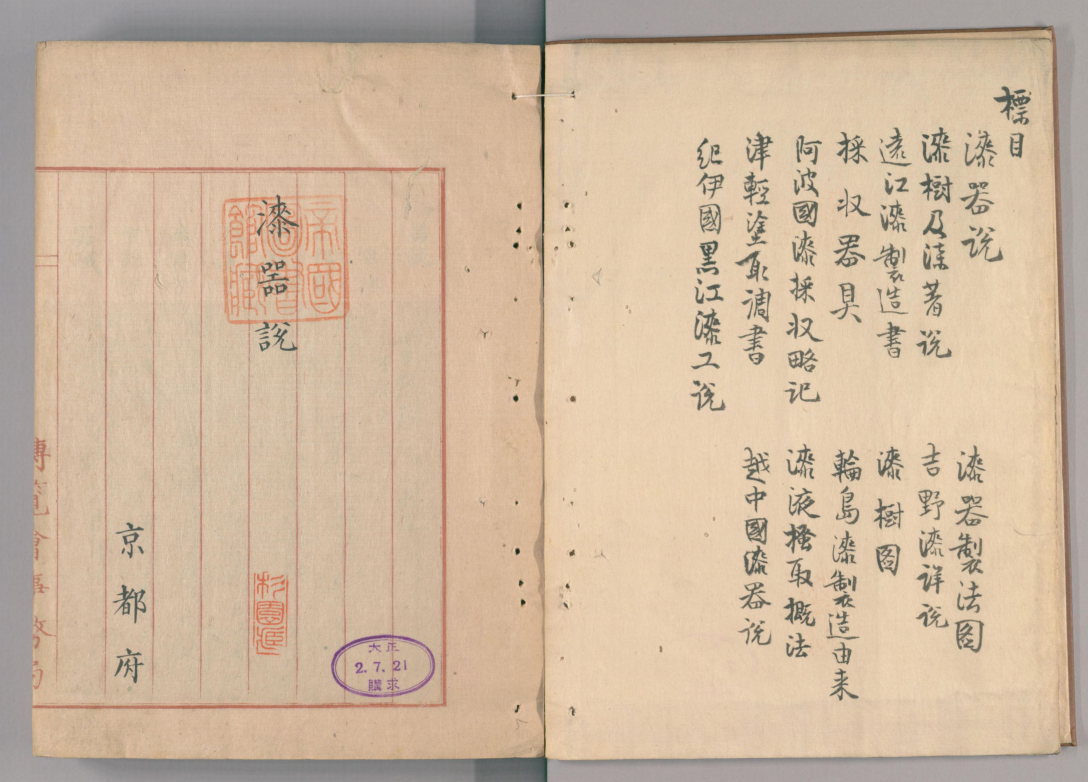 標目
漆器説
漆器製法図
漆樹及漆著説
吉野漆詳説
遠江漆製造書
漆樹図
採収器具
輪島漆製造由来
阿波國漆採収略記
漆液掻取概法
津輕塗取調書
越中國漆器説
紀伊國黒江漆工説
帝國
圖書
館藏
漆器説
杉園蔵
大正
2.7.21
購求
京都府
博覧會事務局